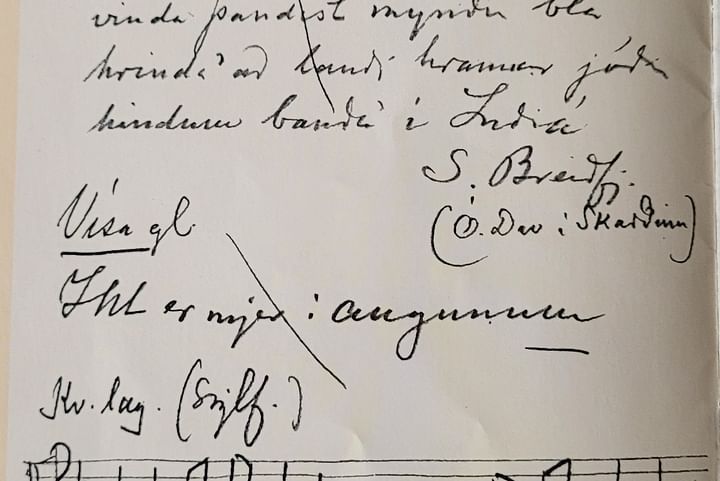 vinda þandist myndin blá
hrinda' að landi hramar jóðin
hindum bandá í Indiá
S. Breiðfj.
(Ó. Dav í Skarðinu)
Vísa gl.
Illt er mjer í augunum
Kv. lag. (Siglf.)